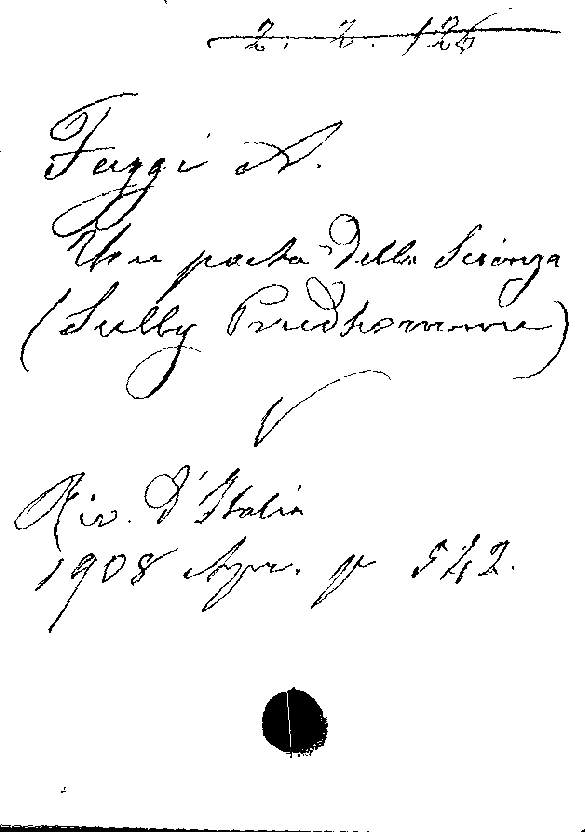 2. 2. 126
Faggi A.
Un poeta della Scienza
(Sully Prudhomme)
Riv. d'Italia
1908 Apr. p 542.